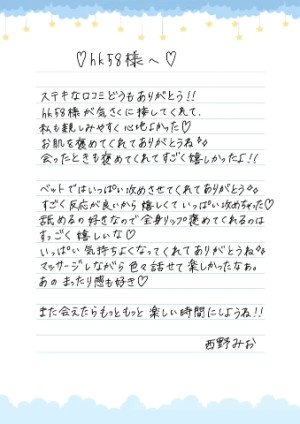 ♡hk58様へ♡
ステキな口コミどうもありがとう!!
hk58様が気さくに接してくれて、
私も親しみやすく心地よかった♡
お肌を褒めてくれてありがとうね♪
会ったときも褒めてくれてすごく嬉しかったよ!!
ベットではいっぱい攻めさせてくれてありがとう♪
すごく反応が良いから嬉しくていっぱい攻めちゃった♡
舐めるの好きなので全身リップ褒めてくれるのは
すっごく嬉しいな♡
いっぱい気持ちよくなってくれてありがとうね♪
マッサージしながら色々話せて楽しかったなぁ。
あのまったり感も好き♡
また会えたらもっともっと楽しい時間にしようね!!
西野みお